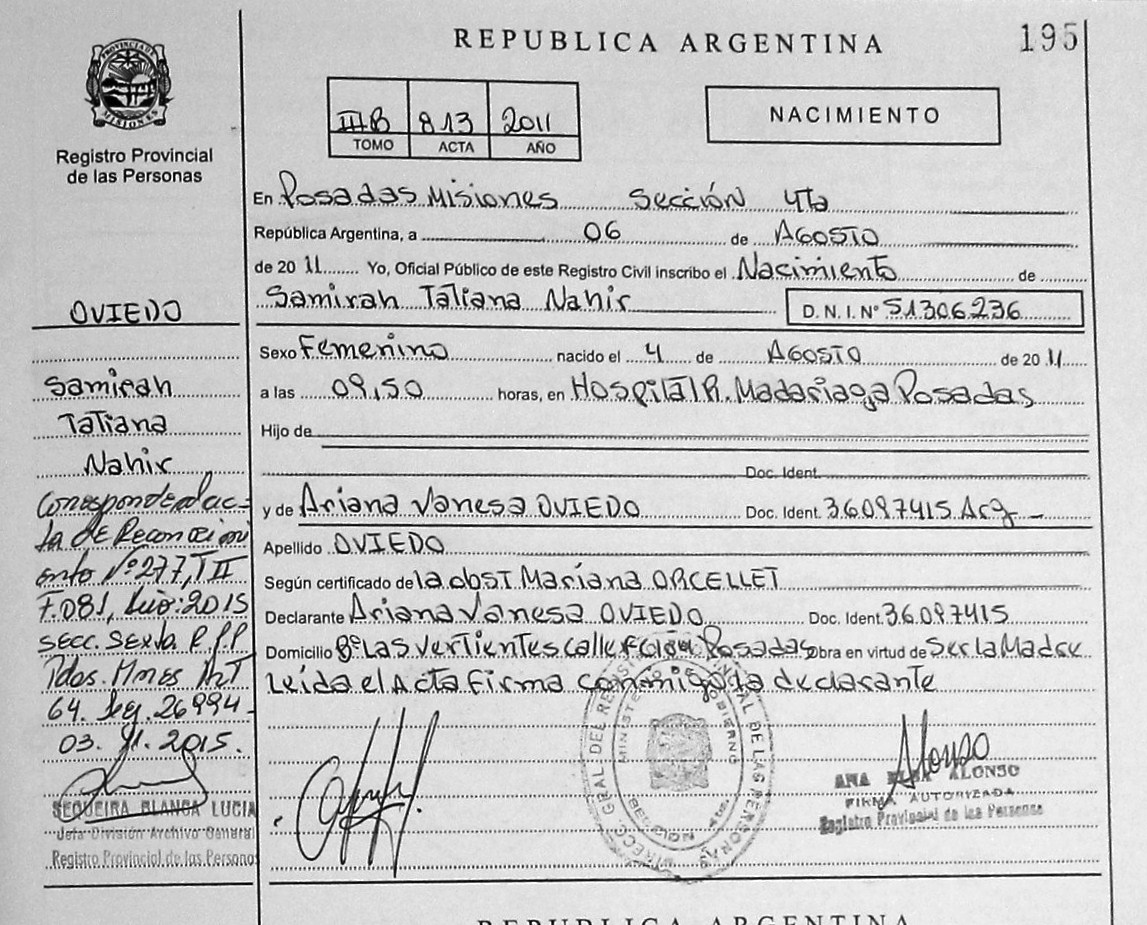 REPUBLICA ARGENTINA
195
PROVINCIA DE MISIONES
Registro Provincial
de las Personas
III B 813 2011
TOMO ACTA AÑO
NACIMIENTO
En Posadas Misiones Sección 4ta
República Argentina, a 06 de AGOSTO
de 20 11 Yo, Oficial Público de este Registro Civil inscribo el Nacimiento de
Samirah Tatiana Nahir
D. N. I. Nº 51306236
Sexo Femenino nacido el 4 de AGOSTO de 20 11
a las 09,50 horas, en Hospital R. Madariaga Posadas
Hijo de
Doc. Ident.
y de Ariana Vanesa OVIEDO Doc. Ident. 36097415 Arg
Apellido OVIEDO
Según certificado de la obst. Mariana ORCELLET
Declarante Ariana Vanesa OVIEDO Doc. Ident. 36097415
Domicilio Bº Las Vertientes calle Posadas Obra en virtud de Ser la Madre
Leída el Acta firma conmigo la declarante
OVIEDO
Samirah
Tatiana
Nahir
Corresponde al ac-
ta de Reconocimi
ento Nº 277, T II
F. 081, Año: 2015
secc. Sexta R.P.P.
Pdas. Mnes Art
64. Ley. 26994-
03. 11. 2015.
SEQUEIRA BLANCA LUCIA
Jefa División Archivo General
Registro Provincial de las Personas
DIRECC. GRAL. DEL REGISTRO PROVINCIAL DE LAS PERSONAS
MINISTERIO DE GOBIERNO
Alonso
ANA ALONSO
FIRMA AUTORIZADA
Registro Provincial de las Personas
REPUBLICA ARGENTINA